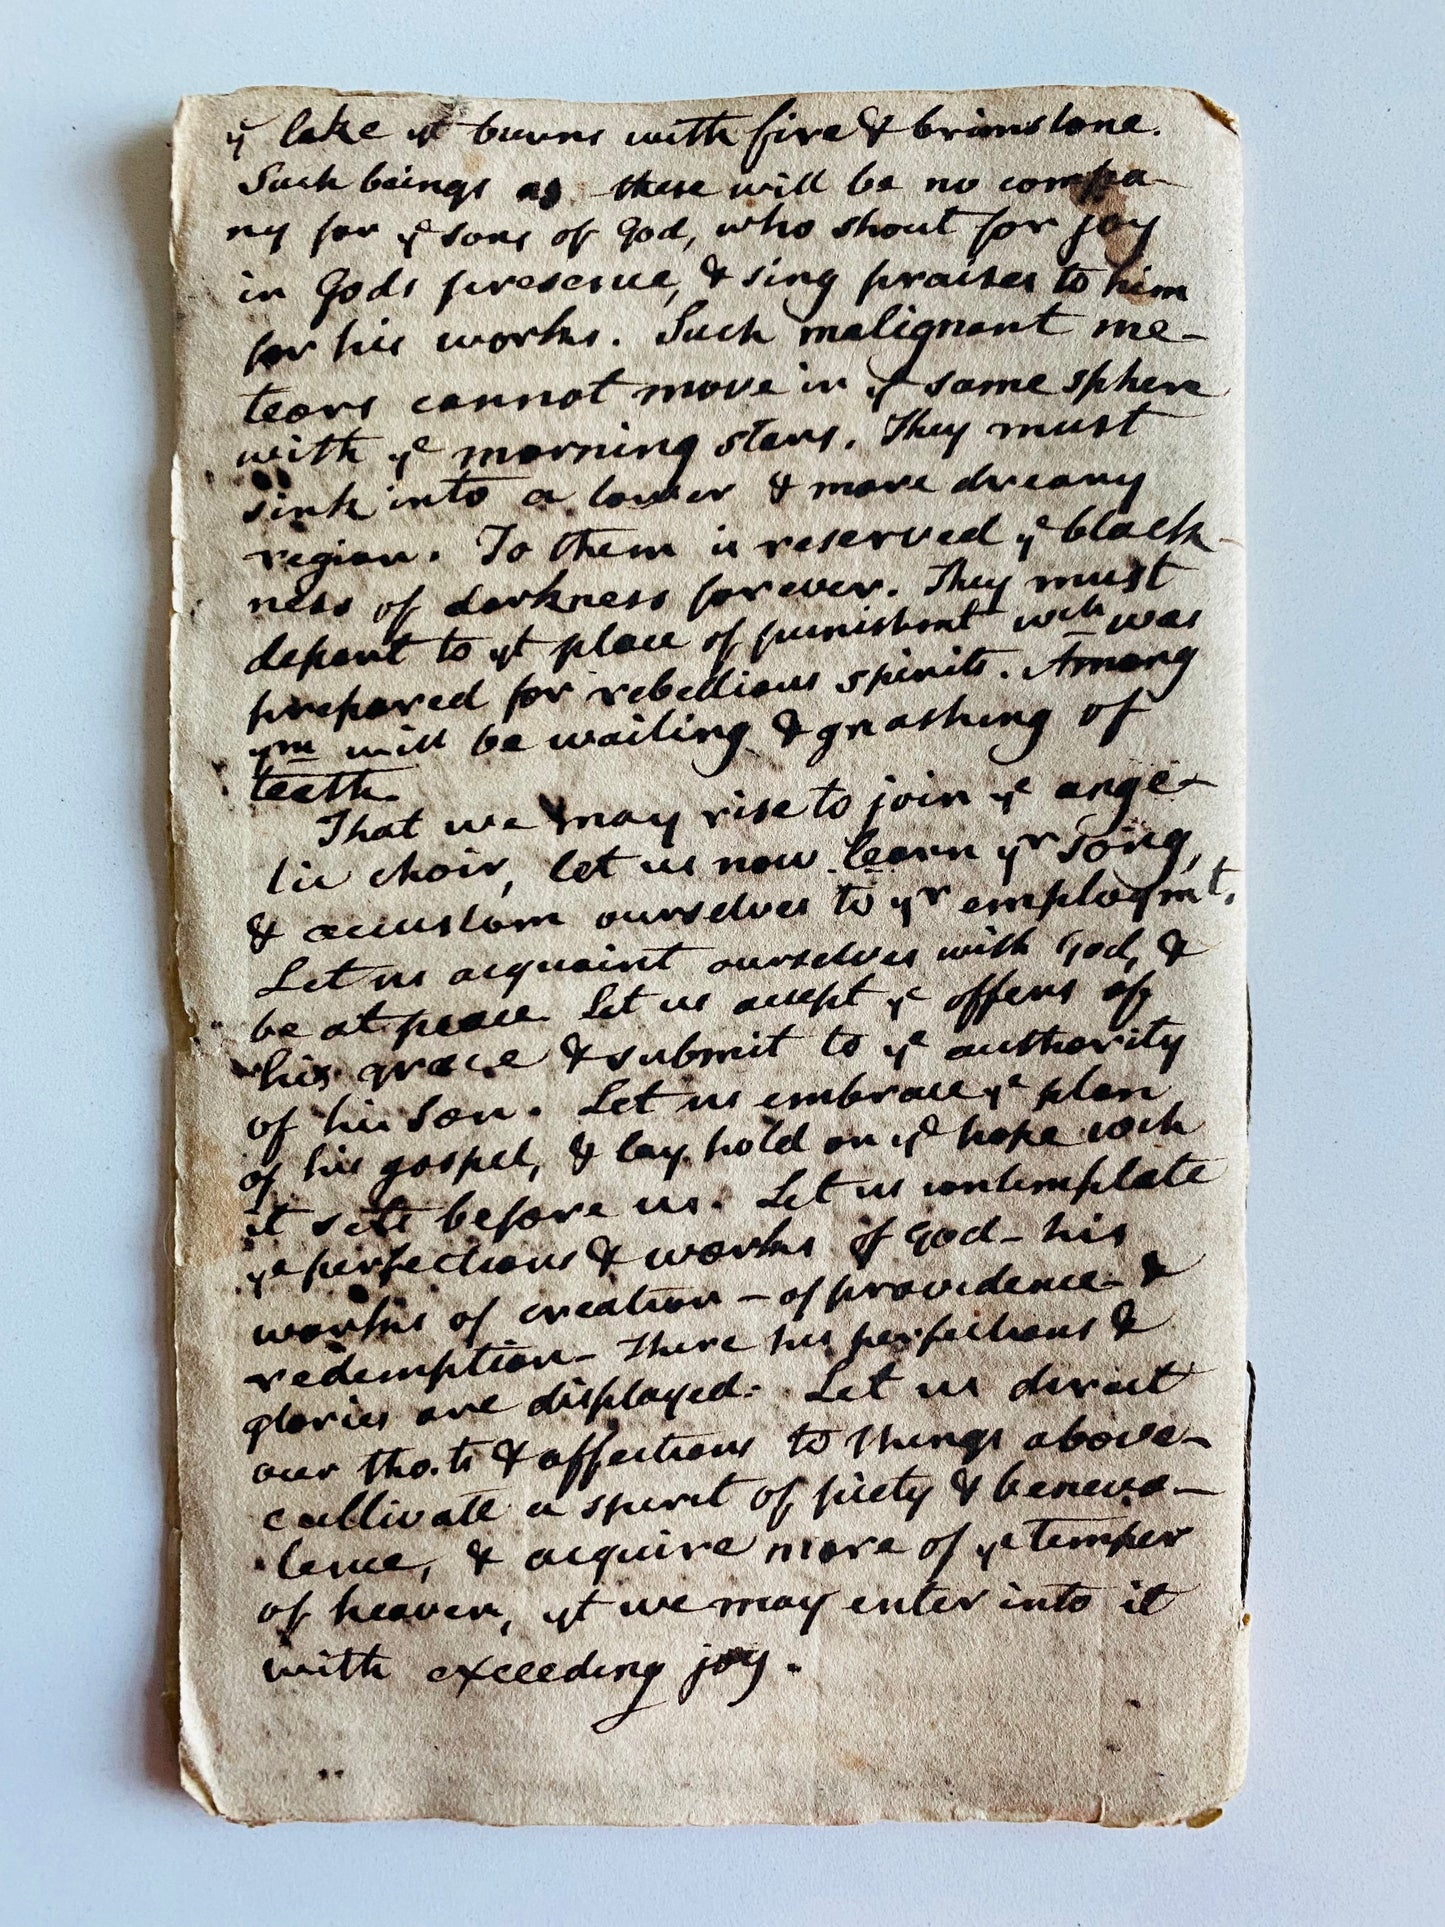 ye lake yt burns with fire & brimstone.
Such beings as these will be no compa-
ny for ye sons of God, who shout for joy
in Gods presence, & sing praises to him
for his works. Such malignant me-
teors cannot move in ye same sphere
with ye morning stars. They must
sink into a lower & more dreary
region. To them is reserved ye black-
ness of darkness forever. They must
depart to yt place of punishmt wch was
prepared for rebellious spirits. Among
ym will be wailing & gnashing of
teeth.
That we may rise to join ye ange-
lic choir, let us now learn yr song,
& accustom ourselves to yr employmt.
Let us acquaint ourselves with God, &
be at peace. Let us accept ye offers of
his grace & submit to ye authority
of his Son. Let us embrace ye plan
of his gospel, & lay hold on ye hope wch
it sets before us. Let us contemplate
ye perfections & works of God - his
works of creation - of providence - &
redemption - There his perfections &
glories are displayed. Let us direct
our thots & affections to things above -
cultivate a spirit of piety & beneva-
lence, & acquire more of ye temper
of heaven, yt we may enter into it
with exceeding joy.